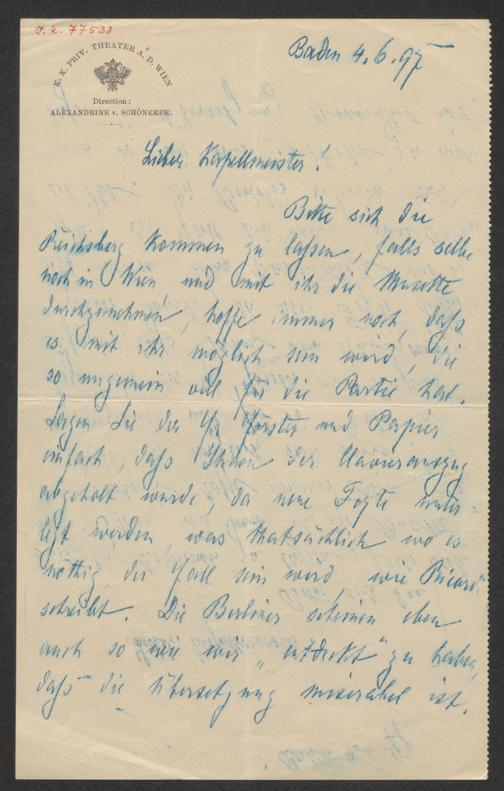 I. N. 77538
K. K. PRIV. THEATER A. D. WIEN
Direction:
ALEXANDRINE v. SCHÖNERER.
Baden 4.6.97
Lieber Kapellmeister!
Bitte sich die
Reichsberg kommen zu lassen, falls selbe
noch in Wien und mit ihr die Musette
durchzunehmen, hoffe immer noch, daß
es mit ihr möglich sein wird, die
so ungemein viel für die Partie hat.
Sagen Sie der Fr. Forster und Papier
einfach, daß Ihnen der Clavierauszug
abgeholt wurde, da neue Texte unter
legt werden, was thatsächlich wo es
nöthig der Fall sein wird, wie Ricordi
schreibt. Die Berliner scheinen eben
auch so wie wir „entdeckt" zu haben,
daß die Übersetzung miserabel ist.